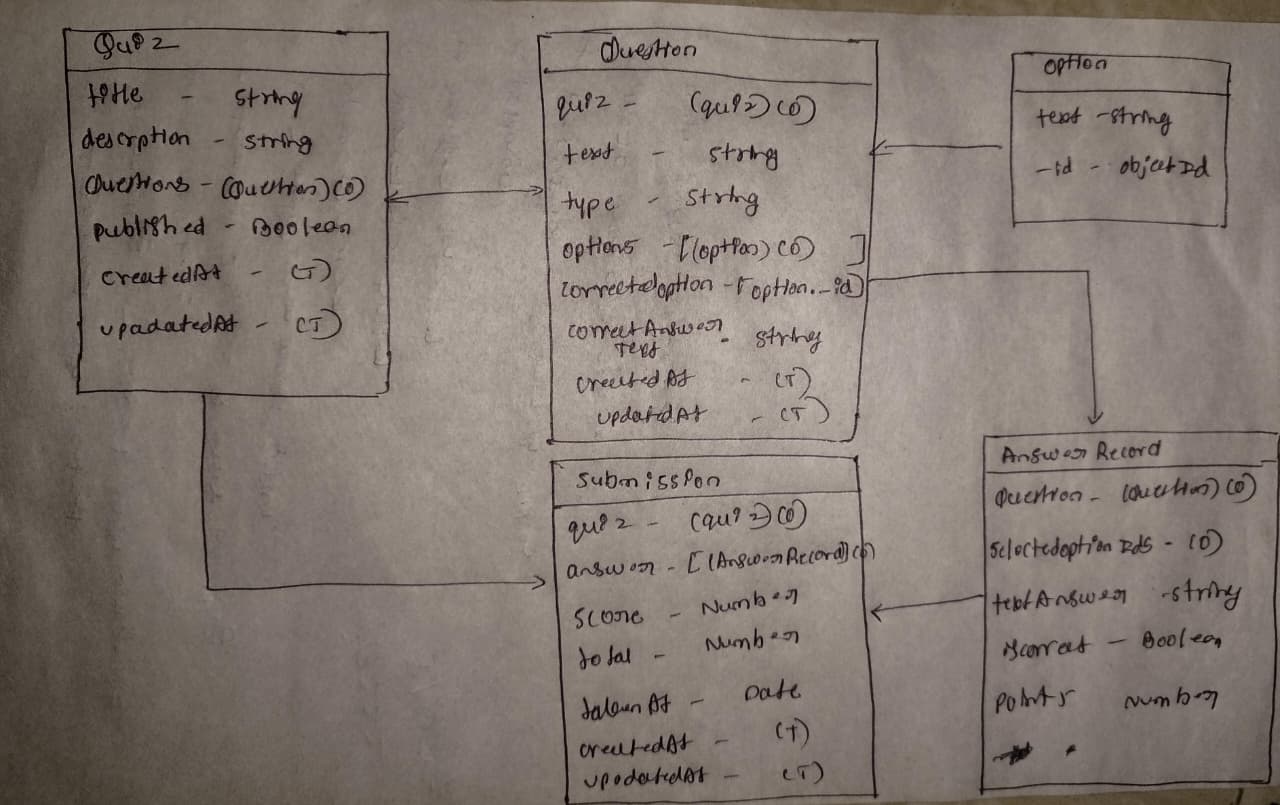 Quiz
title - string
description - string
Questions - (Question)(O)
published - Boolean
createdAt - (T)
upadatedAt - (T)
Question
quiz - (quiz)(O)
text - string
type - string
options - [(option)(O)]
correctedoption - [option._id]
correctAnswer
Text - string
createdAt - (T)
updatedAt - (T)
option
text - string
_id - objectId
Submission
quiz - (quiz)(O)
answer - [(AnswerRecord)(O)
score - Number
total - Number
takenAt - Date
createdAt - (T)
upodatedAt - (T)
Answer Record
Question - (Question)(O)
SelectedoptionIds - (O)
textAnswer - string
iscorrect - Boolean
points Number